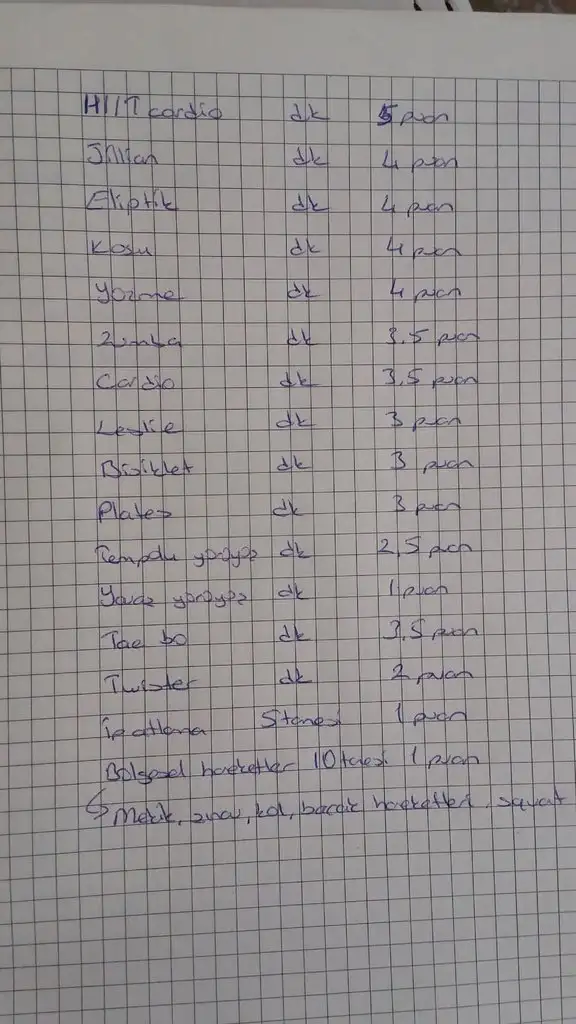 HIIT cardio dk 5 puan
Jillian dk 4 puan
Eliptik dk 4 puan
Koşu dk 4 puan
Yüzme dk 4 puan
Zumba dk 3.5 puan
Cardio dk 3,5 puan
Leslie dk 3 puan
Bisiklet dk 3 puan
Plates dk 3 puan
Tempolu yürüyüş dk 2,5 puan
Yavaş yürüyüş dk 1 puan
Tae bo dk 3,5 puan
Twister dk 2 puan
İp atlama 5 tanesi 1 puan
Bölgesel hareketler 10 tanesi 1 puan
Mekik, şınav, kol, bacak hareketleri, squat